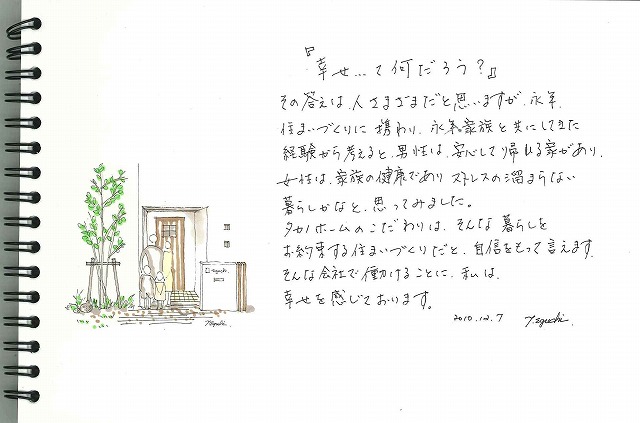 『幸せ…て何だろう?』
その答えは、人さまざまだと思いますが、永年、
住まいづくりに携わり、永年家族と共にしてきた
経験から考えると、男性は、安心して帰れる家があり、
女性は、家族の健康であり ストレスの溜まらない
暮らしかなと、思ってみました。
タカノホームのこだわりは、そんな暮らしを
お約束する住まいづくりだと、自信をもって言えます。
そんな会社で働けることに、私は、
幸せを感じております。
2010.12.7 Y.eguchi.
eguchi.
Y.eguchi.